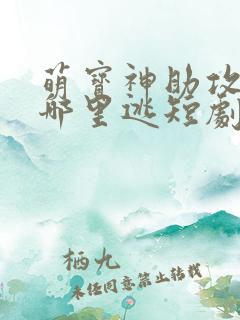 萌寶神助攻
哪里逃短劇
栖九
未经同意禁止转载